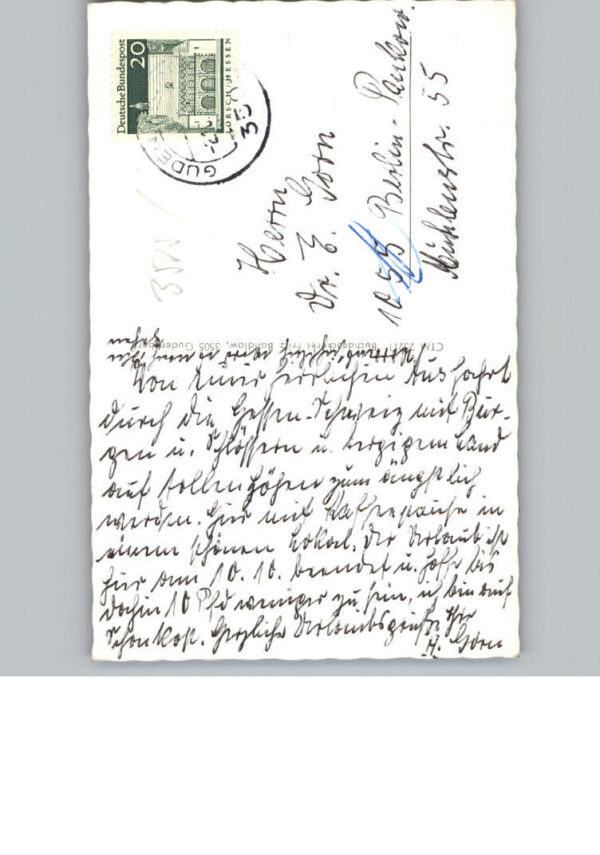 Deutsche Bundespost
20
LORSCH/HESSEN
GUDEN
35
Herrn
Dr. E. Gorn
1055 Berlin-Pankow.
Mühlenstr. 55
Buchdruckerei Fritz 3505 Gudensberg
Von einer herrlichen Ausfahrt
durch die Hessen-Schweiz mit Bur-
gen u. Schlössern u. bergigem Land
auf tollen Höhen zum ängstlich
werden. Hier mit Kaffeepause in
einem schönen Lokal. Der Urlaub ist
hier am 10.10. beendet u. hoffe bis
dahin 10 Pfd weniger zu sein, ich bin auf
Schonkost. Herzliche Urlaubsgrüße Ihr
H. Gorn